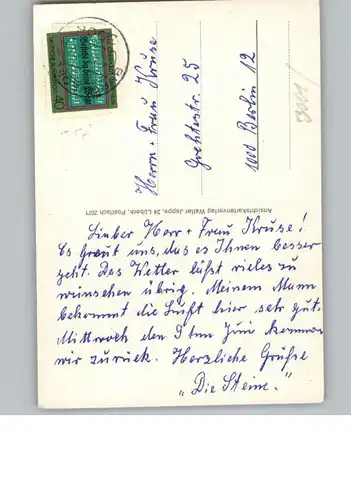 Herrn + Frau Kruse
1000 Berlin 12
Ansichtskartenverlag Walter Jappe, 24 Lübeck, Postfach 2071
Lieber Herr + Frau Kruse!
Es freut uns, das es Ihnen besser
geht. Das Wetter läßt vieles zu
wünschen übrig. Meinem Mann
bekommt die Luft hier sehr gut.
Mittwoch den 9ten Juni kommen
wir zurück. Herzliche Grüße
"Die Steine."
40